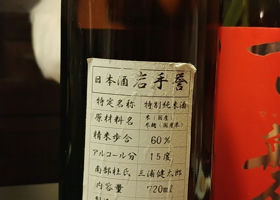 日本酒 岩手誉
特定名称 特別純米酒
原材料名 米（国産） 米麹（国産米）
精米歩合 60%
アルコール分 15度
南部杜氏 三浦健太郎
内容量 720ml